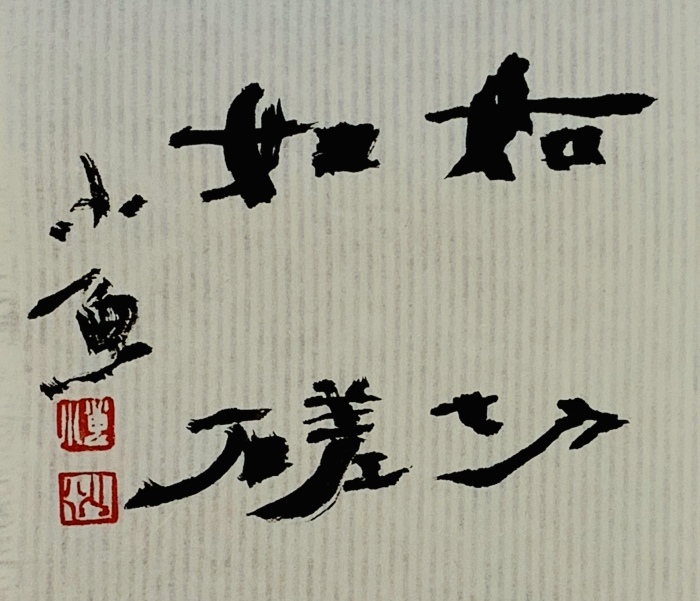 如切
如磋
小鱼